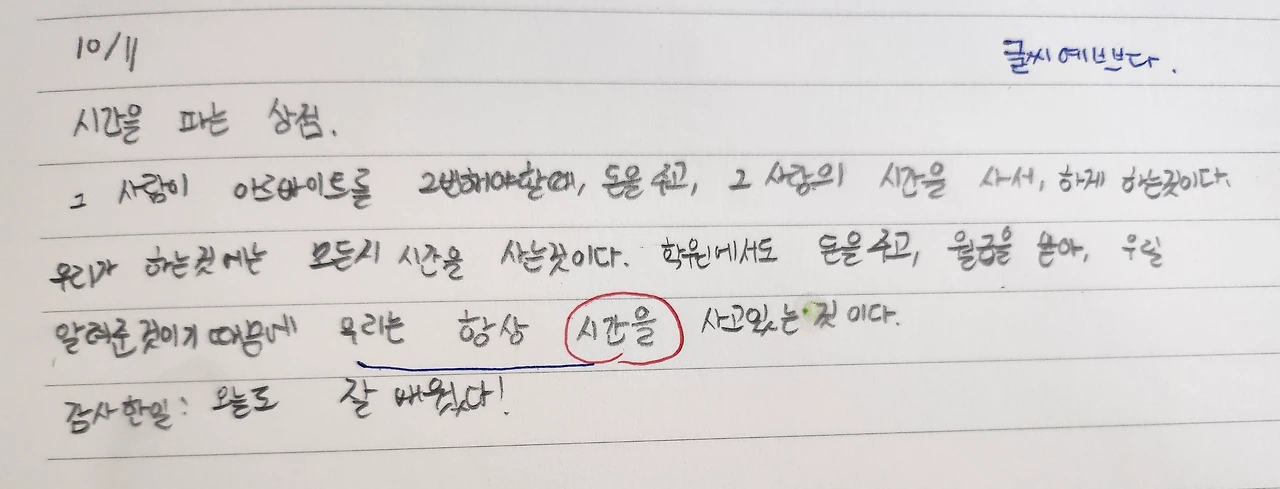 10/11
글씨 예쁘다.
시간을 파는 상점.
그 사람이 아르바이트를 2번해야할때, 돈을 주고, 그 사람의 시간을 사서, 하게 하는것이다.
우리가 하는것에는 모든지 시간을 사는것이다. 학원에서도 돈을 주고, 월급을 받아, 우릴
알려준것이기 때문에 우리는 항상 시간을 사고있는 것이다.
감사한일: 오늘도 잘 배웠다!